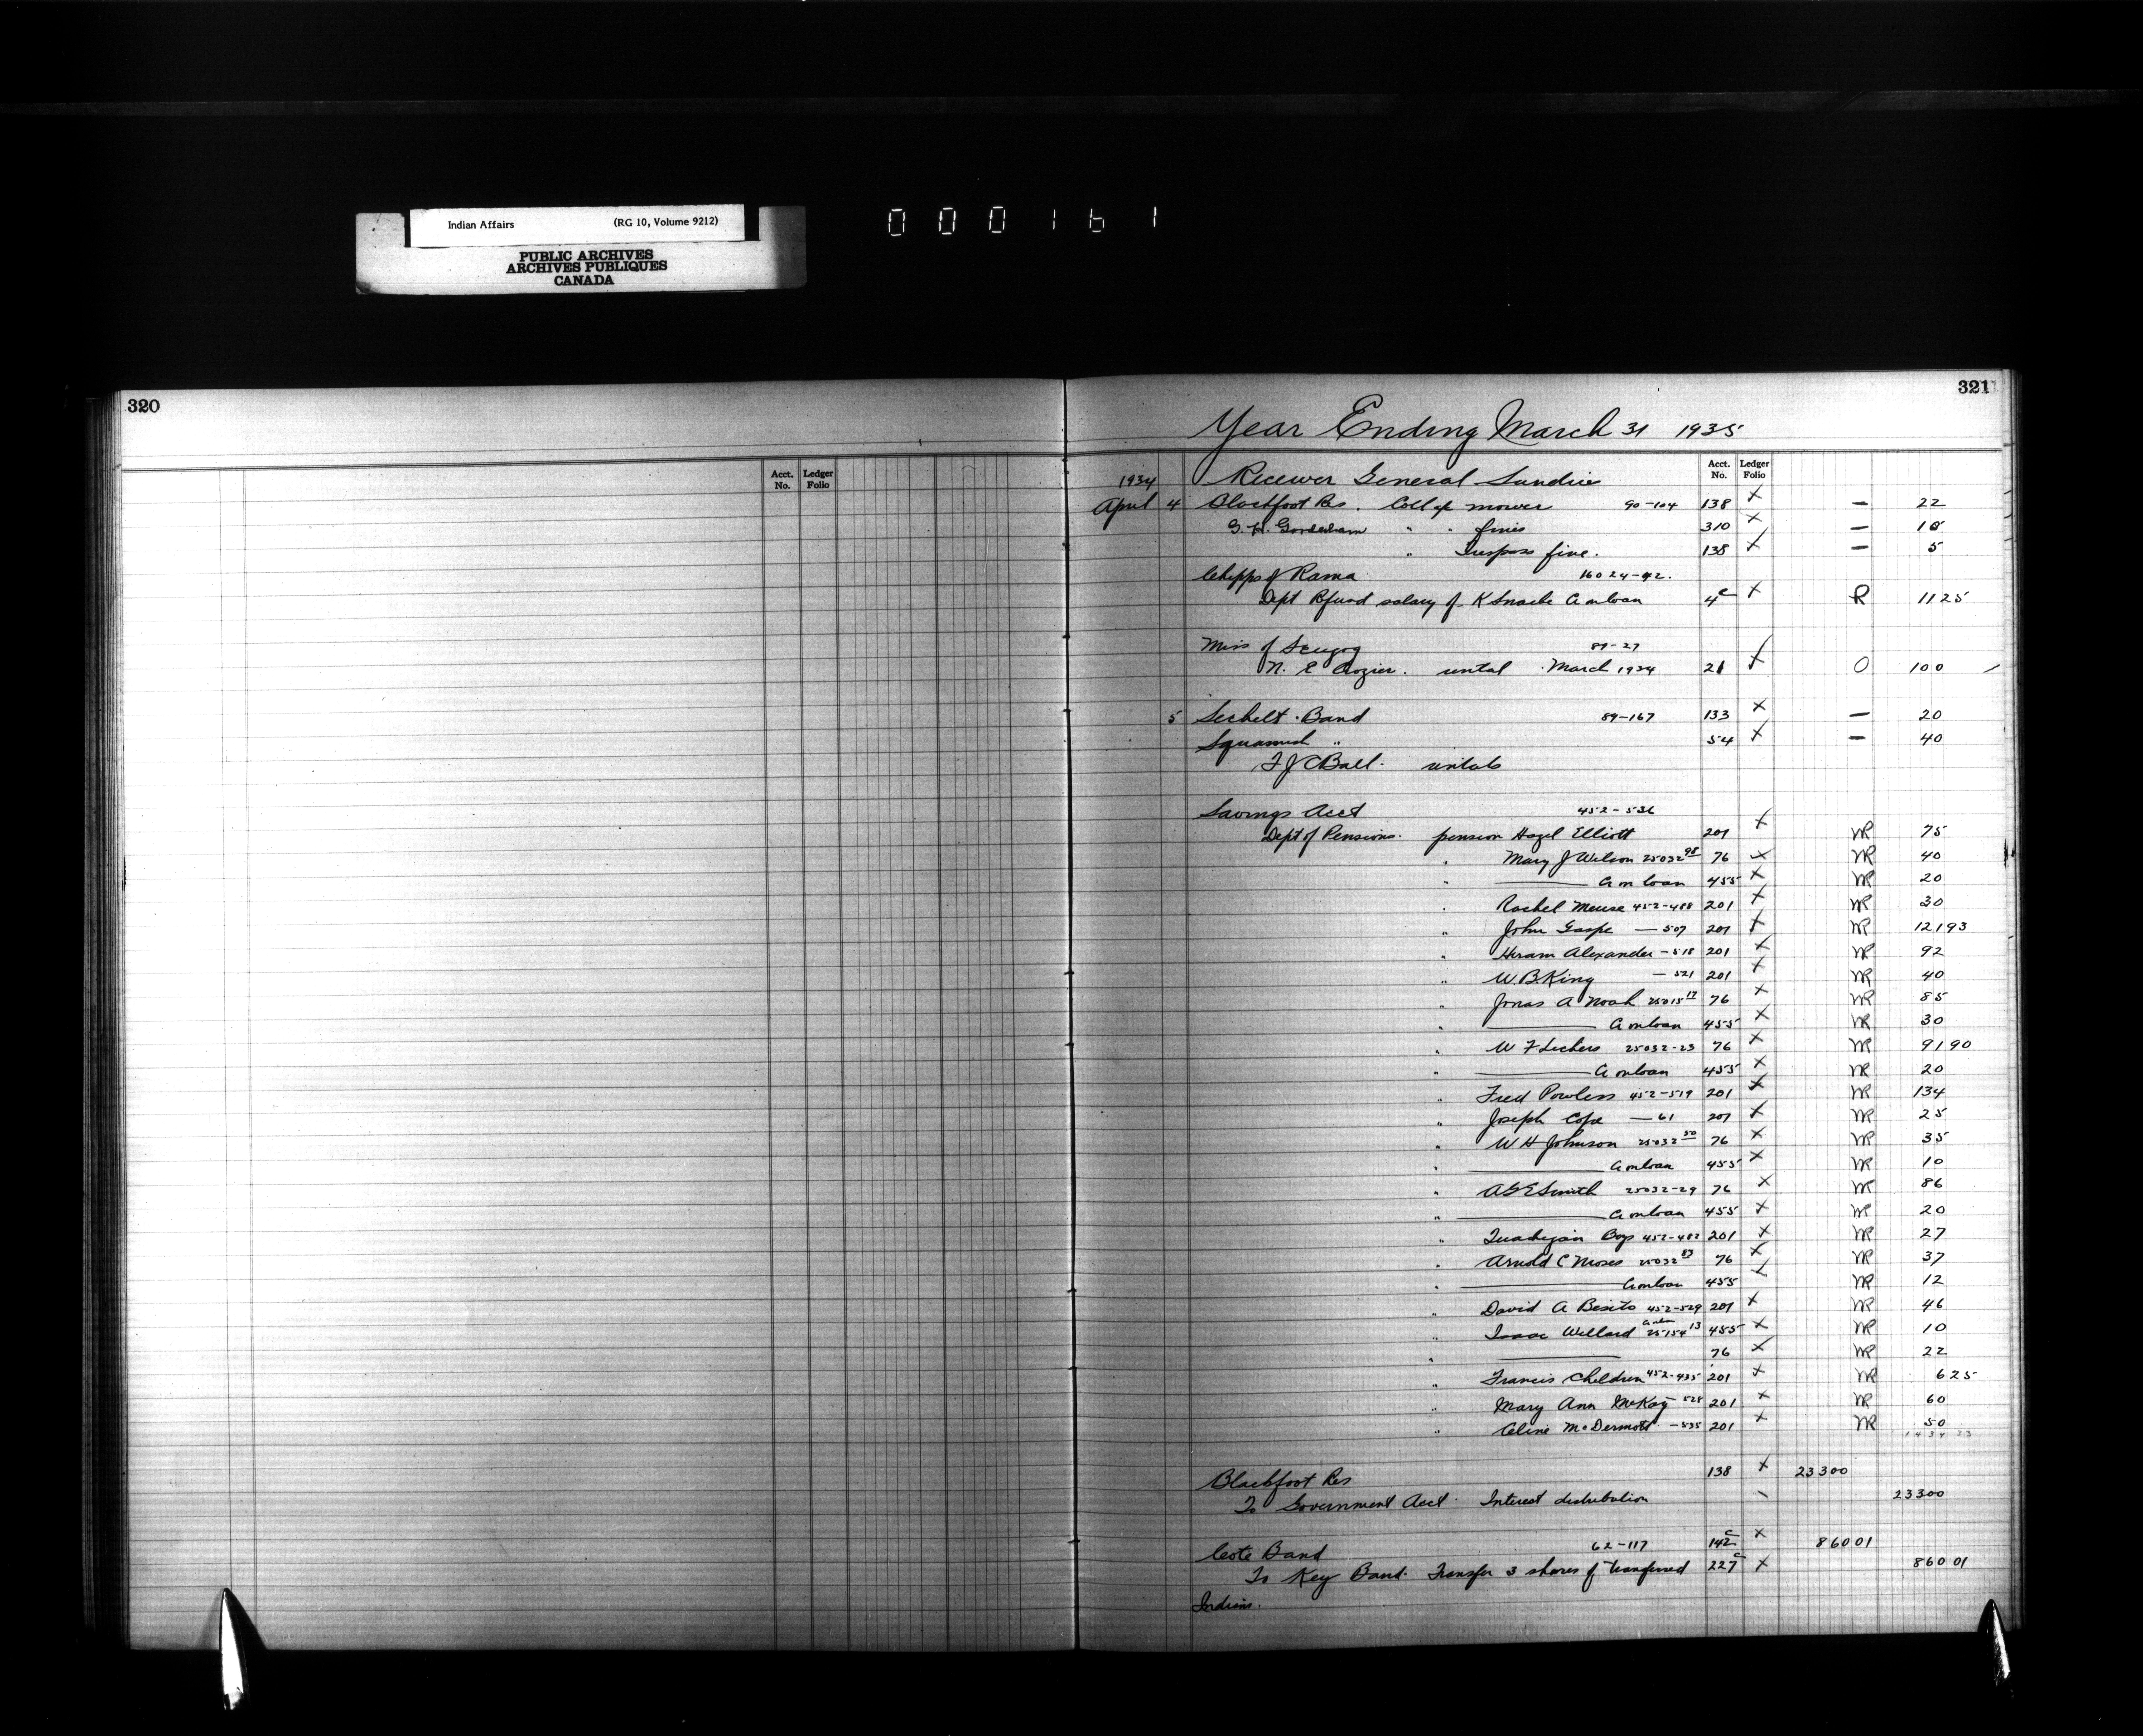 Indian Affairs (RG 10, Volume 9212)
PUBLIC ARCHIVES
ARCHIVES PUBLIQUES
CANADA
000161
320
321
Year Ending March 31 1935
Acct. No. Ledger Folio
Acct. No. Ledger Folio
1934 Receiver General Sundries
April 4 Blackfoot Res. Coll of mower 90-104 138 x — 22
G. H. Gooderham " " fines 310 x — 10
" Trespass fine. 138 x — 5
Chipps of Rama 16024-42.
Dept Refund salary of K Snache a on loan 4c x R 1125
Miss of Scugog 89-27
N. E Crozier. rental March 1934 21 x O 100
5 Sechelt Band 89-167 133 x — 20
Squamish " 54 x — 40
F J C Ball. rentals
Savings Acct 452-536
Dept of Pensions. pension Hazel Elliott 201 x NR 75
" Mary J Wilson 25032 98 76 x NR 40
" —— a on loan 455 x NR 20
" Rachel Meuse 452-488 201 x NR 30
" John Gaspe — 507 201 x NR 12193
" Hiram Alexander - 518 201 x NR 92
" W. B. King - 521 201 x NR 40
" Jonas A Noah 25015 17 76 x NR 85
" —— a on loan 455 x NR 30
" W F 25032-23 76 x NR 9190
" —— a on loan 455 x NR 20
" Fred Powless 452-519 201 x NR 134
" Joseph Cope — 61 201 x NR 25
" W H Johnson 25032 50 76 x NR 35
" —— a on loan 455 x NR 10
" A G E Smith 25032-29 76 x NR 86
" —— a on loan 455 x NR 20
" Boys 452-482 201 x NR 27
" Arnold C Moses 25032 83 76 x NR 37
" —— a on loan 455 x NR 12
" David A Besito 452-529 201 x NR 46
" Isaac Willard a on loan 25154 13 455 x NR 10
" —— 76 x NR 22
" Francis Children 452-435 201 x NR 625
" Mary Ann McKay - 528 201 x NR 60
" Celine McDermott - 535 201 x NR 50
1434 33
Blackfoot Res 138 x 23300
To Government Acct. Interest distribution 23300
Cote Band 62-117 142c x 86001
To Key Band. Transfer 3 shares of transferred 227c x 86001
Indians.